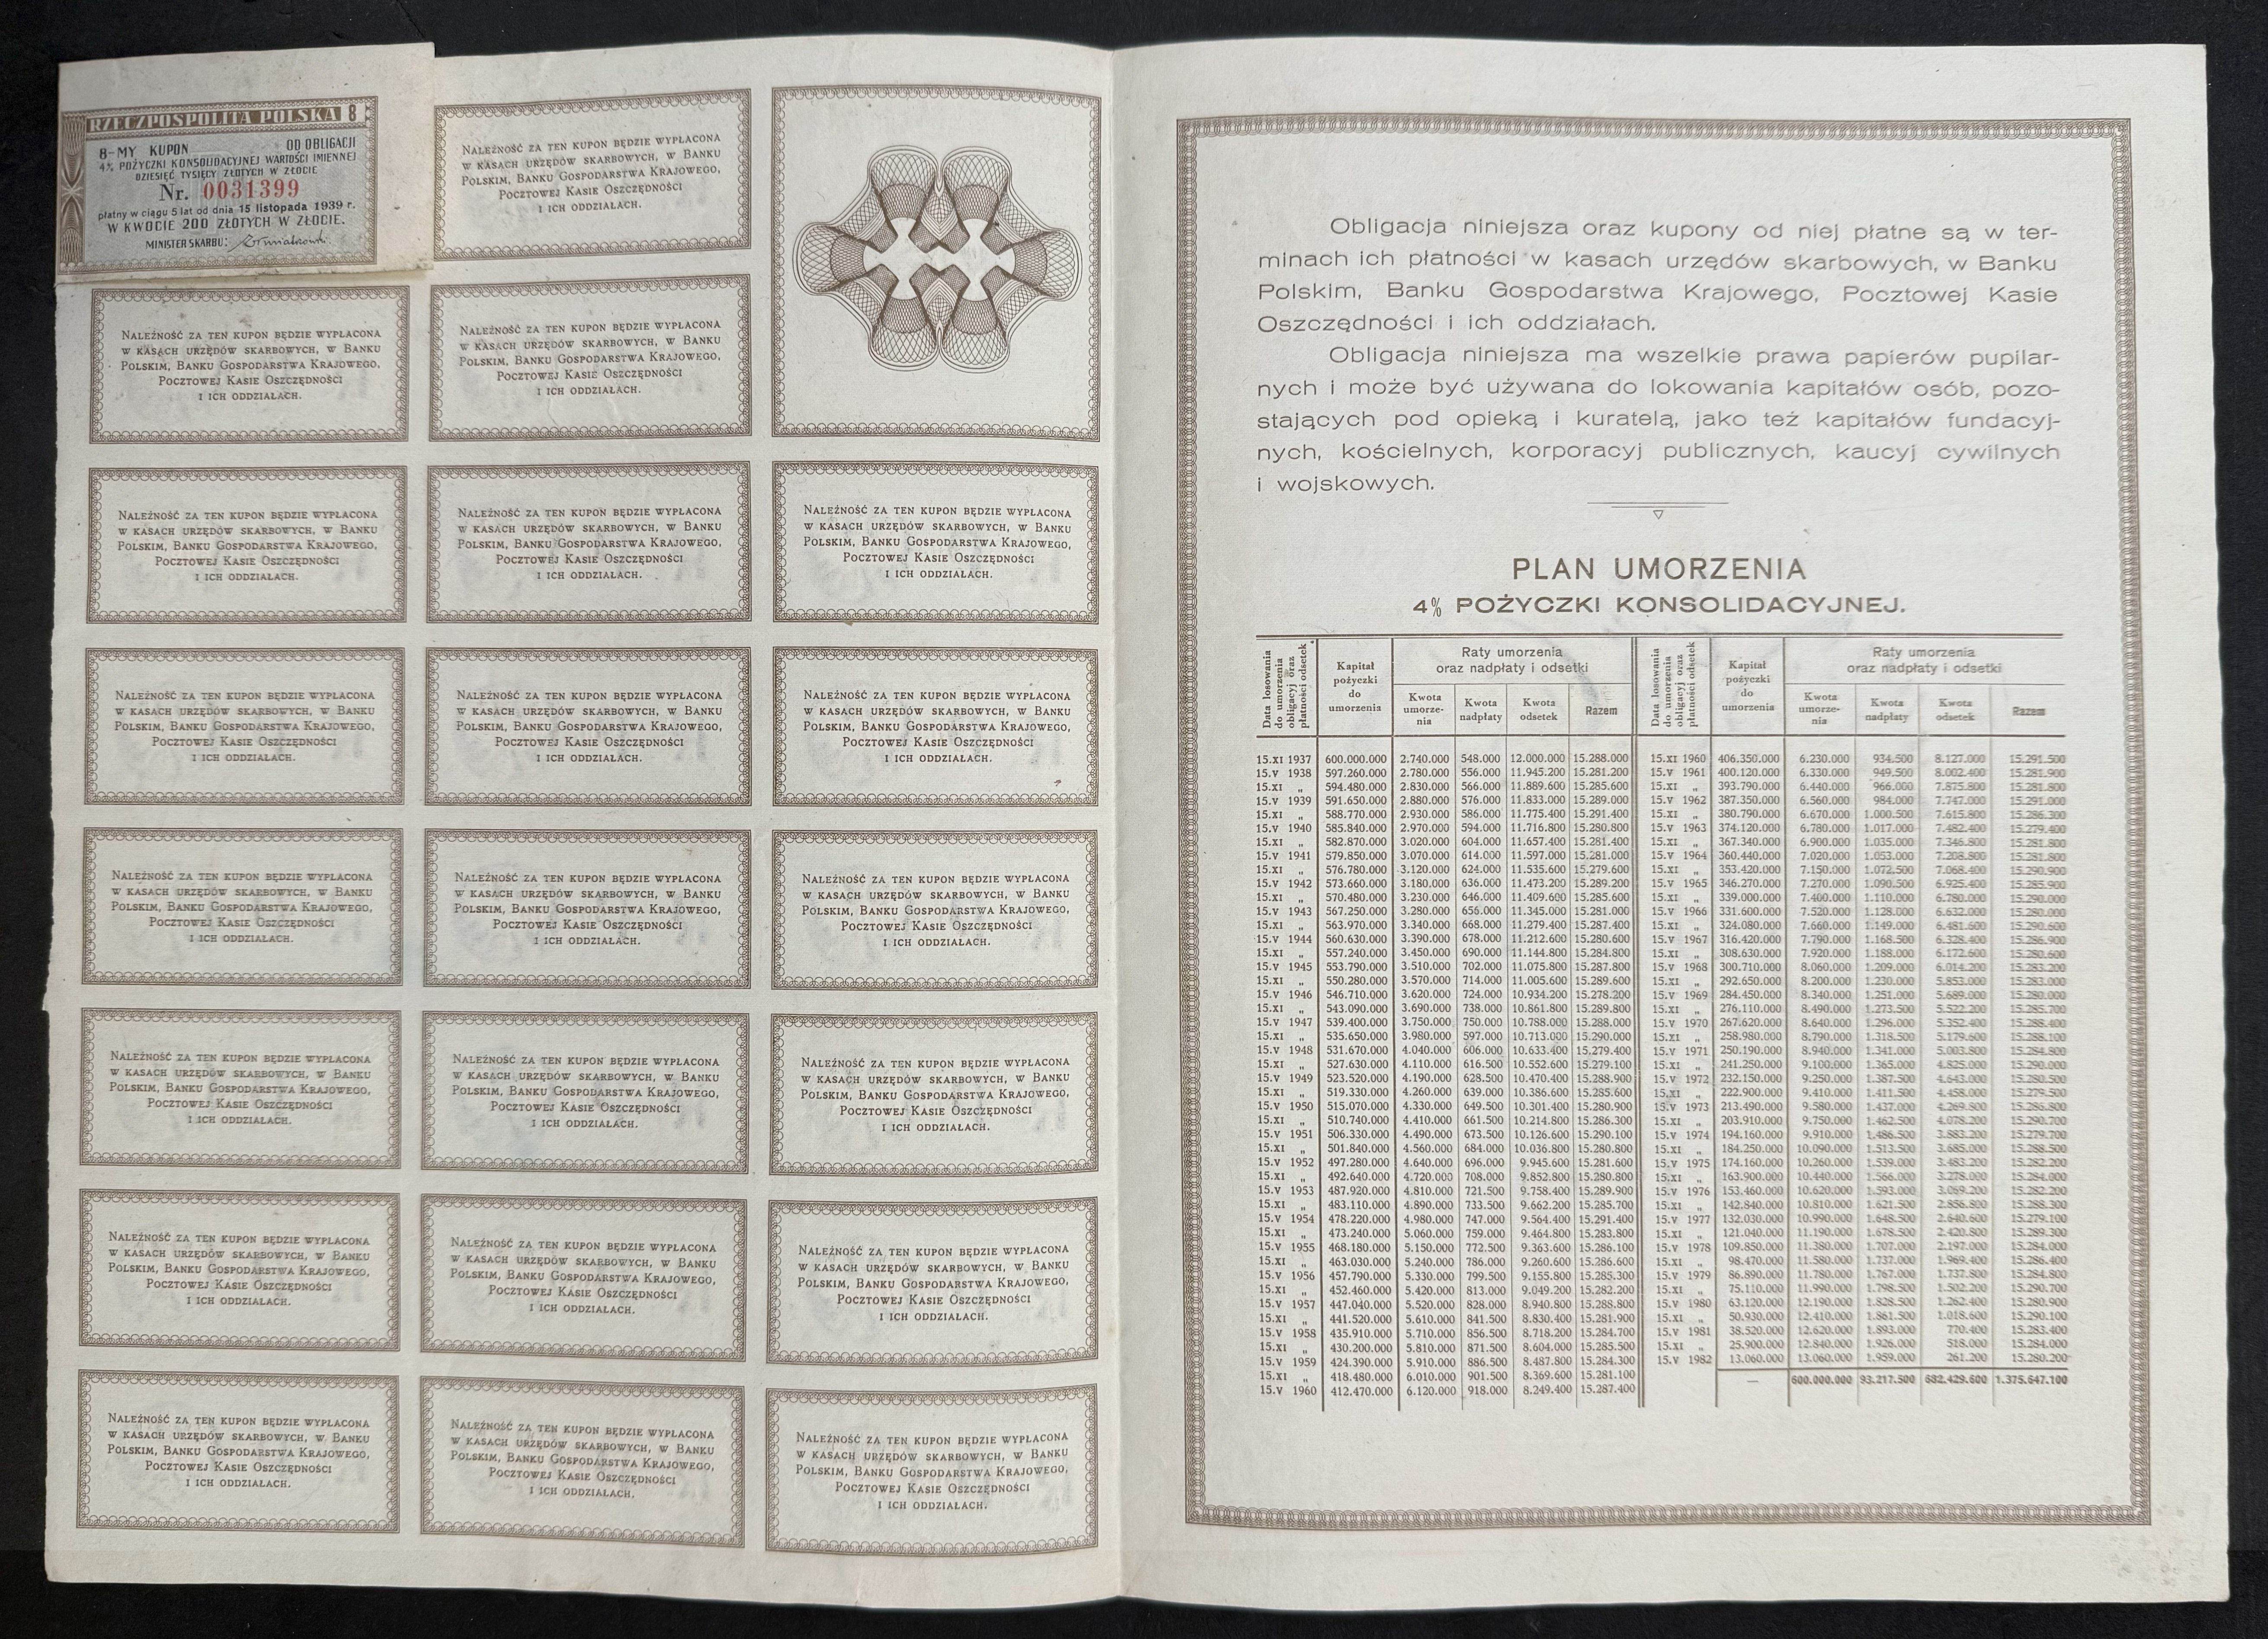 RZECZPOSPOLITA POLSKA 8
8-MY KUPON OD OBLIGACJI
4% POŻYCZKI KONSOLIDACYJNEJ WARTOŚCI IMIENNEJ
DZIESIĘĆ TYSIĘCY ZŁOTYCH W ZŁOCIE
Nr. 0031399
płatny w ciągu 5 lat od dnia 15 listopada 1939 r.
W KWOCIE 200 ZŁOTYCH W ZŁOCIE.
MINISTER SKARBU:
Należność za ten kupon będzie wypłacona
w kasach urzędów skarbowych, w Banku
Polskim, Banku Gospodarstwa Krajowego,
Pocztowej Kasie Oszczędności
i ich oddziałach.
Należność za ten kupon będzie wypłacona
w kasach urzędów skarbowych, w Banku
Polskim, Banku Gospodarstwa Krajowego,
Pocztowej Kasie Oszczędności
i ich oddziałach.
Należność za ten kupon będzie wypłacona
w kasach urzędów skarbowych, w Banku
Polskim, Banku Gospodarstwa Krajowego,
Pocztowej Kasie Oszczędności
i ich oddziałach.
Należność za ten kupon będzie wypłacona
w kasach urzędów skarbowych, w Banku
Polskim, Banku Gospodarstwa Krajowego,
Pocztowej Kasie Oszczędności
i ich oddziałach.
Należność za ten kupon będzie wypłacona
w kasach urzędów skarbowych, w Banku
Polskim, Banku Gospodarstwa Krajowego,
Pocztowej Kasie Oszczędności
i ich oddziałach.
Należność za ten kupon będzie wypłacona
w kasach urzędów skarbowych, w Banku
Polskim, Banku Gospodarstwa Krajowego,
Pocztowej Kasie Oszczędności
i ich oddziałach.
Należność za ten kupon będzie wypłacona
w kasach urzędów skarbowych, w Banku
Polskim, Banku Gospodarstwa Krajowego,
Pocztowej Kasie Oszczędności
i ich oddziałach.
Należność za ten kupon będzie wypłacona
w kasach urzędów skarbowych, w Banku
Polskim, Banku Gospodarstwa Krajowego,
Pocztowej Kasie Oszczędności
i ich oddziałach.
Należność za ten kupon będzie wypłacona
w kasach urzędów skarbowych, w Banku
Polskim, Banku Gospodarstwa Krajowego,
Pocztowej Kasie Oszczędności
i ich oddziałach.
Należność za ten kupon będzie wypłacona
w kasach urzędów skarbowych, w Banku
Polskim, Banku Gospodarstwa Krajowego,
Pocztowej Kasie Oszczędności
i ich oddziałach.
Należność za ten kupon będzie wypłacona
w kasach urzędów skarbowych, w Banku
Polskim, Banku Gospodarstwa Krajowego,
Pocztowej Kasie Oszczędności
i ich oddziałach.
Należność za ten kupon będzie wypłacona
w kasach urzędów skarbowych, w Banku
Polskim, Banku Gospodarstwa Krajowego,
Pocztowej Kasie Oszczędności
i ich oddziałach.
Należność za ten kupon będzie wypłacona
w kasach urzędów skarbowych, w Banku
Polskim, Banku Gospodarstwa Krajowego,
Pocztowej Kasie Oszczędności
i ich oddziałach.
Należność za ten kupon będzie wypłacona
w kasach urzędów skarbowych, w Banku
Polskim, Banku Gospodarstwa Krajowego,
Pocztowej Kasie Oszczędności
i ich oddziałach.
Należność za ten kupon będzie wypłacona
w kasach urzędów skarbowych, w Banku
Polskim, Banku Gospodarstwa Krajowego,
Pocztowej Kasie Oszczędności
i ich oddziałach.
Należność za ten kupon będzie wypłacona
w kasach urzędów skarbowych, w Banku
Polskim, Banku Gospodarstwa Krajowego,
Pocztowej Kasie Oszczędności
i ich oddziałach.
Należność za ten kupon będzie wypłacona
w kasach urzędów skarbowych, w Banku
Polskim, Banku Gospodarstwa Krajowego,
Pocztowej Kasie Oszczędności
i ich oddziałach.
Należność za ten kupon będzie wypłacona
w kasach urzędów skarbowych, w Banku
Polskim, Banku Gospodarstwa Krajowego,
Pocztowej Kasie Oszczędności
i ich oddziałach.
Należność za ten kupon będzie wypłacona
w kasach urzędów skarbowych, w Banku
Polskim, Banku Gospodarstwa Krajowego,
Pocztowej Kasie Oszczędności
i ich oddziałach.
Należność za ten kupon będzie wypłacona
w kasach urzędów skarbowych, w Banku
Polskim, Banku Gospodarstwa Krajowego,
Pocztowej Kasie Oszczędności
i ich oddziałach.
Należność za ten kupon będzie wypłacona
w kasach urzędów skarbowych, w Banku
Polskim, Banku Gospodarstwa Krajowego,
Pocztowej Kasie Oszczędności
i ich oddziałach.
Obligacja niniejsza oraz kupony od niej płatne są w ter-
minach ich płatności w kasach urzędów skarbowych, w Banku
Polskim, Banku Gospodarstwa Krajowego, Pocztowej Kasie
Oszczędności i ich oddziałach.
Obligacja niniejsza ma wszelkie prawa papierów pupilar-
nych i może być używana do lokowania kapitałów osób, pozo-
stających pod opieką i kuratelą, jako też kapitałów fundacyj-
nych, kościelnych, korporacyj publicznych, kaucyj cywilnych
i wojskowych.
PLAN UMORZENIA
4% POŻYCZKI KONSOLIDACYJNEJ.
Data losowania do umorzenia obligacyj oraz płatności odsetek
Kapitał pożyczki do umorzenia
Raty umorzenia oraz nadpłaty i odsetki
Kwota umorze-nia
Kwota nadpłaty
Kwota odsetek
Razem
15.XI 1937 600.000.000 2.740.000 548.000 12.000.000 15.288.000
15.V 1938 597.260.000 2.780.000 556.000 11.945.200 15.281.200
15.XI „ 594.480.000 2.830.000 566.000 11.889.600 15.285.600
15.V 1939 591.650.000 2.880.000 576.000 11.833.000 15.289.000
15.XI „ 588.770.000 2.930.000 586.000 11.775.400 15.291.400
15.V 1940 585.840.000 2.970.000 594.000 11.716.800 15.280.800
15.XI „ 582.870.000 3.020.000 604.000 11.657.400 15.281.400
15.V 1941 579.850.000 3.070.000 614.000 11.597.000 15.281.000
15.XI „ 576.780.000 3.120.000 624.000 11.535.600 15.279.600
15.V 1942 573.660.000 3.180.000 636.000 11.473.200 15.289.200
15.XI „ 570.480.000 3.230.000 646.000 11.409.600 15.285.600
15.V 1943 567.250.000 3.280.000 656.000 11.345.000 15.281.000
15.XI „ 563.970.000 3.340.000 668.000 11.279.400 15.287.400
15.V 1944 560.630.000 3.390.000 678.000 11.212.600 15.280.600
15.XI „ 557.240.000 3.450.000 690.000 11.144.800 15.284.800
15.V 1945 553.790.000 3.510.000 702.000 11.075.800 15.287.800
15.XI „ 550.280.000 3.570.000 714.000 11.005.600 15.289.600
15.V 1946 546.710.000 3.620.000 724.000 10.934.200 15.278.200
15.XI „ 543.090.000 3.690.000 738.000 10.861.800 15.289.800
15.V 1947 539.400.000 3.750.000 750.000 10.788.000 15.288.000
15.XI „ 535.650.000 3.980.000 597.000 10.713.000 15.290.000
15.V 1948 531.670.000 4.040.000 606.000 10.633.400 15.279.400
15.XI „ 527.630.000 4.110.000 616.500 10.552.600 15.279.100
15.V 1949 523.520.000 4.190.000 628.500 10.470.400 15.288.900
15.XI „ 519.330.000 4.260.000 639.000 10.386.600 15.285.600
15.V 1950 515.070.000 4.330.000 649.500 10.301.400 15.280.900
15.XI „ 510.740.000 4.410.000 661.500 10.214.800 15.286.300
15.V 1951 506.330.000 4.490.000 673.500 10.126.600 15.290.100
15.XI „ 501.840.000 4.560.000 684.000 10.036.800 15.280.800
15.V 1952 497.280.000 4.640.000 696.000 9.945.600 15.281.600
15.XI „ 492.640.000 4.720.000 708.000 9.852.800 15.280.800
15.V 1953 487.920.000 4.810.000 721.500 9.758.400 15.289.900
15.XI „ 483.110.000 4.890.000 733.500 9.662.200 15.285.700
15.V 1954 478.220.000 4.980.000 747.000 9.564.400 15.291.400
15.XI „ 473.240.000 5.060.000 759.000 9.464.800 15.283.800
15.V 1955 468.180.000 5.150.000 772.500 9.363.600 15.286.100
15.XI „ 463.030.000 5.240.000 786.000 9.260.600 15.286.600
15.V 1956 457.790.000 5.330.000 799.500 9.155.800 15.285.300
15.XI „ 452.460.000 5.420.000 813.000 9.049.200 15.282.200
15.V 1957 447.040.000 5.520.000 828.000 8.940.800 15.288.800
15.XI „ 441.520.000 5.610.000 841.500 8.830.400 15.281.900
15.V 1958 435.910.000 5.710.000 856.500 8.718.200 15.284.700
15.XI „ 430.200.000 5.810.000 871.500 8.604.000 15.285.500
15.V 1959 424.390.000 5.910.000 886.500 8.487.800 15.284.300
15.XI „ 418.480.000 6.010.000 901.500 8.369.600 15.281.100
15.V 1960 412.470.000 6.120.000 918.000 8.249.400 15.287.400
Data losowania do umorzenia obligacyj oraz płatności odsetek
Kapitał pożyczki do umorzenia
Raty umorzenia oraz nadpłaty i odsetki
Kwota umorze-nia
Kwota nadpłaty
Kwota odsetek
Razem
15.XI 1960 406.350.000 6.230.000 934.500 8.127.000 15.291.500
15.V 1961 400.120.000 6.330.000 949.500 8.002.400 15.281.900
15.XI „ 393.790.000 6.440.000 966.000 7.875.800 15.281.800
15.V 1962 387.350.000 6.560.000 984.000 7.747.000 15.291.000
15.XI „ 380.790.000 6.670.000 1.000.500 7.615.800 15.286.300
15.V 1963 374.120.000 6.780.000 1.017.000 7.482.400 15.279.400
15.XI „ 367.340.000 6.900.000 1.035.000 7.346.800 15.281.800
15.V 1964 360.440.000 7.020.000 1.053.000 7.208.800 15.281.800
15.XI „ 353.420.000 7.150.000 1.072.500 7.068.400 15.290.900
15.V 1965 346.270.000 7.270.000 1.090.500 6.925.400 15.285.900
15.XI „ 339.000.000 7.400.000 1.110.000 6.780.000 15.290.000
15.V 1966 331.600.000 7.520.000 1.128.000 6.632.000 15.280.000
15.XI „ 324.080.000 7.660.000 1.149.000 6.481.600 15.290.600
15.V 1967 316.420.000 7.790.000 1.168.500 6.328.400 15.286.900
15.XI „ 308.630.000 7.920.000 1.188.000 6.172.600 15.280.600
15.V 1968 300.710.000 8.060.000 1.209.000 6.014.200 15.283.200
15.XI „ 292.650.000 8.200.000 1.230.000 5.853.000 15.283.000
15.V 1969 284.450.000 8.340.000 1.251.000 5.689.000 15.280.000
15.XI „ 276.110.000 8.490.000 1.273.500 5.522.200 15.285.700
15.V 1970 267.620.000 8.640.000 1.296.000 5.352.400 15.288.400
15.XI „ 258.980.000 8.790.000 1.318.500 5.179.600 15.288.100
15.V 1971 250.190.000 8.940.000 1.341.000 5.003.800 15.284.800
15.XI „ 241.250.000 9.100.000 1.365.000 4.825.000 15.290.000
15.V 1972 232.150.000 9.250.000 1.387.500 4.643.000 15.280.500
15.XI „ 222.900.000 9.410.000 1.411.500 4.458.000 15.279.500
15.V 1973 213.490.000 9.580.000 1.437.000 4.269.800 15.286.800
15.XI „ 203.910.000 9.750.000 1.462.500 4.078.200 15.290.700
15.V 1974 194.160.000 9.910.000 1.486.500 3.883.200 15.279.700
15.XI „ 184.250.000 10.090.000 1.513.500 3.685.000 15.288.500
15.V 1975 174.160.000 10.260.000 1.539.000 3.483.200 15.282.200
15.XI „ 163.900.000 10.440.000 1.566.000 3.278.000 15.284.000
15.V 1976 153.460.000 10.620.000 1.593.000 3.069.200 15.282.200
15.XI „ 142.840.000 10.810.000 1.621.500 2.856.800 15.288.300
15.V 1977 132.030.000 10.990.000 1.648.500 2.640.600 15.279.100
15.XI „ 121.040.000 11.190.000 1.678.500 2.420.800 15.289.300
15.V 1978 109.850.000 11.380.000 1.707.000 2.197.000 15.284.000
15.XI „ 98.470.000 11.580.000 1.737.000 1.969.400 15.286.400
15.V 1979 86.890.000 11.780.000 1.767.000 1.737.800 15.284.800
15.XI „ 75.110.000 11.990.000 1.798.500 1.502.200 15.290.700
15.V 1980 63.120.000 12.190.000 1.828.500 1.262.400 15.280.900
15.XI „ 50.930.000 12.410.000 1.861.500 1.018.600 15.290.100
15.V 1981 38.520.000 12.620.000 1.893.000 770.400 15.283.400
15.XI „ 25.900.000 12.840.000 1.926.000 518.000 15.284.000
15.V 1982 13.060.000 13.060.000 1.959.000 261.200 15.280.200
— 600.000.000 93.217.500 682.429.600 1.375.647.100